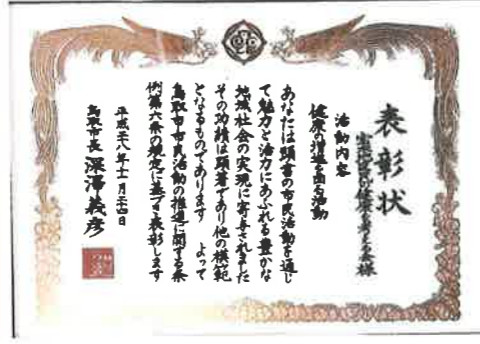 表彰状
地区民の健康を考える会様
活動内容
健康の増進を図る活動
あなたは頭書の市民活動を通じ
て魅力と活力にあふれる豊かな
地域社会の実現に寄与されました
その功績は顕著であり他の模範
となるものであります よって
鳥取市市民活動の推進に関する条
例第六条の規定に基づき表彰します
平成二十八年十一月二十四日
鳥取市長 深澤義彦